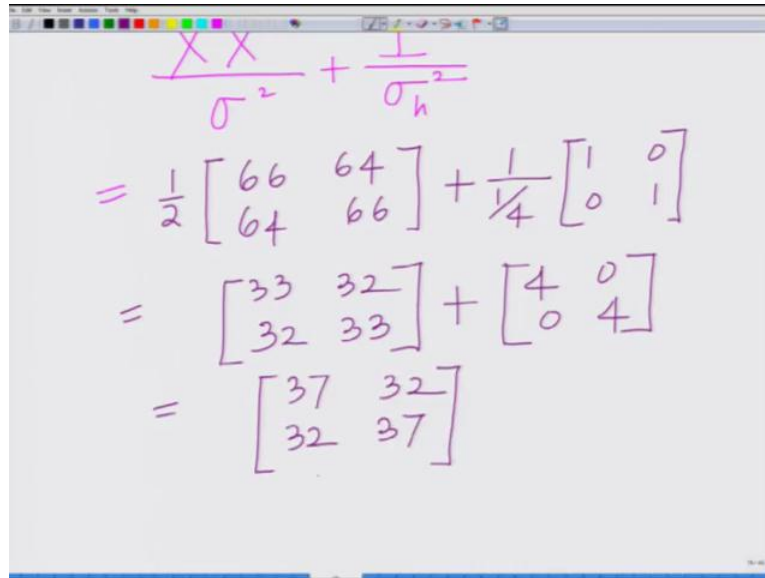 X X / σ² + I / σh²
= 1/2 [ 66 64 ; 64 66 ] + 1/(1/4) [ 1 0 ; 0 1 ]
= [ 33 32 ; 32 33 ] + [ 4 0 ; 0 4 ]
= [ 37 32 ; 32 37 ]